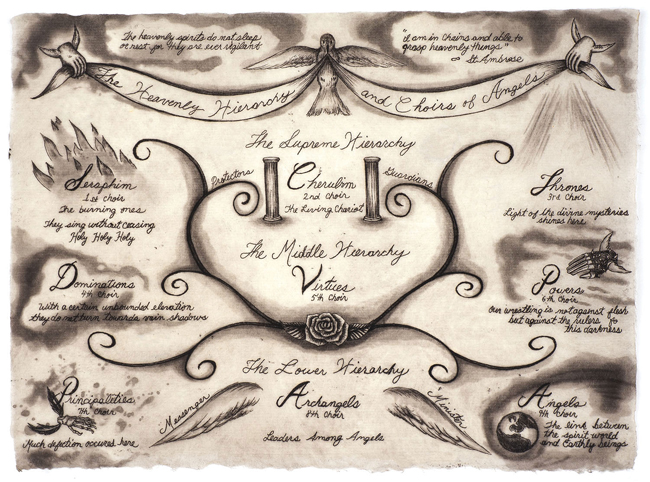 The heavenly spirits do not sleep
or rest for they are ever vigilant
"I am in chains and able to
grasp heavenly things"
St Ambrose
The Heavenly Hierarchy and Choirs of Angels
The Supreme Hierarchy
Seraphim
1st choir
The burning ones
They sing without ceasing
Holy Holy Holy
Protectors
Cherubim
2nd choir
The Living Chariot
Guardians
Thrones
3rd Choir
Light of the divine mysteries
shines here
The Middle Hierarchy
Dominations
4th Choir
With a certain unbounded elevation
they do not turn towards vain shadows
Virtues
5th Choir
Powers
6th Choir
Our wrestling is not against flesh
but against the rulers of
this darkness
The Lower Hierarchy
Principalities
7th Choir
Much defection occured here
Messenger
Archangels
8th Choir
Leaders Among Angels
Minister
Angels
9th Choir
The link between
the spirit world
and Earthly beings